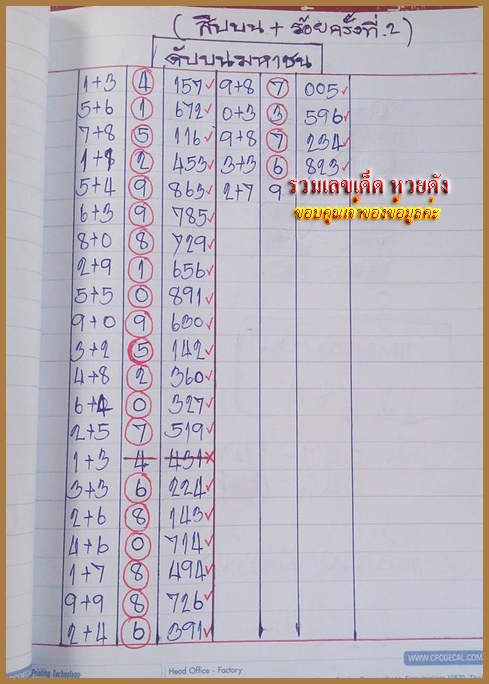 (สิบบน + ร้อยครั้งที่.2)
ดับบนมหาชน
1+3 4 157✓ 9+8 7 005✓
5+6 1 672✓ 0+3 3 596✓
7+8 5 116✓ 9+8 7 234✓
1+1 2 453✓ 3+3 6 823✓
5+4 9 863✓ 2+7 9
รวมเลขเด็ด หวยดัง
6+3 9 785✓
ขอบคุณเจ้าของข้อมูลค่ะ
8+0 8 729✓
2+9 1 656✓
5+5 0 891✓
9+0 9 630✓
3+2 5 142✓
4+8 2 360✓
6+4 0 327✓
2+5 7 519✓
1+3 4 431×
3+3 6 224✓
2+6 8 143✓
4+6 0 714✓
1+7 8 494✓
9+9 8 726✓
2+4 6 391✓
WWW.CPCDECAL.COM
Printing Technology
Head Office - Factory